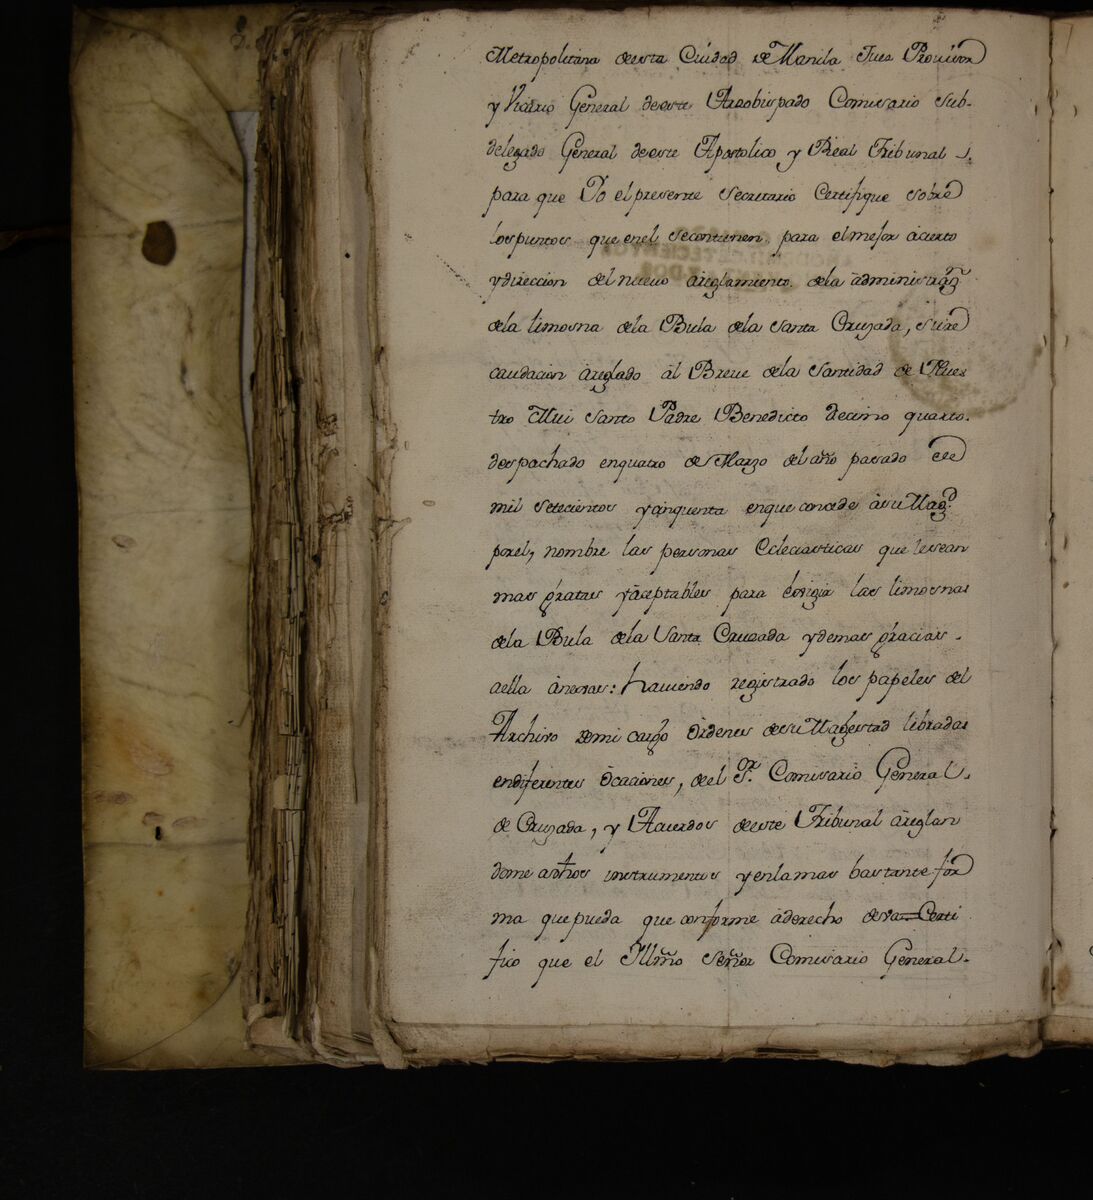 Metropolitana deesta Ciudad de Manila Juez Provisor
y Vicario General deeste Arzobispado Comisario Sub-
delegado General deeste Apostolico y Real Tribunal
para que Yo el presente Secretario Certifique sobre
los puntos que enel secontienen para elmejor ácierto
ydireccion del nuevo árèglamiento dela administraz.n
dela limosna dela Bula dela Santa Cruzada, su re
caudacion áreglado ál Breue dela Santidad de Nues
tro Mui Santo Padre Benedicto decimo quarto.
despachado enquatro de Marzo del año pasado de
mil setecientos ycinquenta enque concede ásu Mag.d
porel, nombre las personas Eclesiasticas que lesean
mas gratas yáceptables para corregir las limosnas
dela Bula dela Santa Cruzada ydemas gracias
aella ánexas: haviendo registrado los papeles del
Archivo demi cargo órdenes desu Magestad libradas
endiferentes ócaciones, del S.or Comisario General
de Cruzada, y Acuerdos deeste Tribunal áreglan
dome adhos instrumentos yenlamas bastante for
ma quepueda que conforme áderecho deva Certi
fico que el Illmo Señor Comisario General